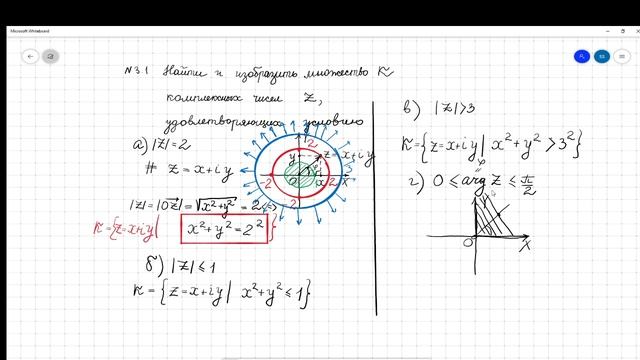 Microsoft Whiteboard
N3.1 Найти и изобразить множество K
комплексных чисел z,
удовлетворяющих условию
а) |z|=2
# z = x+iy
|z| = |0z| = √x²+y² = 2 <=>
K={z=x+iy| x²+y² = 2²}
б) |z| ≤ 1
K = {z=x+iy| x²+y² ≤ 1}
2
y
z=x+iy
φ
-2
x
2
X
2
в) |z|>3
K={z=x+iy| x²+y² > 3²}
φ
г) 0 ≤ arg z ≤ π/2
0
X